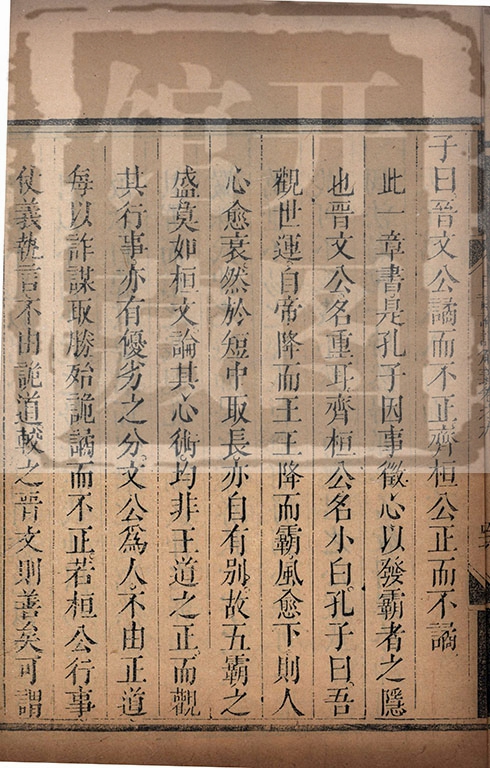 子曰晉文公譎而不正齊桓公正而不譎
此一章書是孔子因事徵心以發霸者之隱
也晉文公名重耳齊桓公名小白孔子曰吾
觀世運自帝降而王王降而霸風愈下則人
心愈衰然於短中取長亦自有別故五霸之
盛莫如桓文論其心術均非王道之正而觀
其行事亦有優劣之分文公為人不由正道
每以詐謀取勝殆詭譎而不正若桓公行事
仗義執言不由詭道較之晉文則善矣可謂